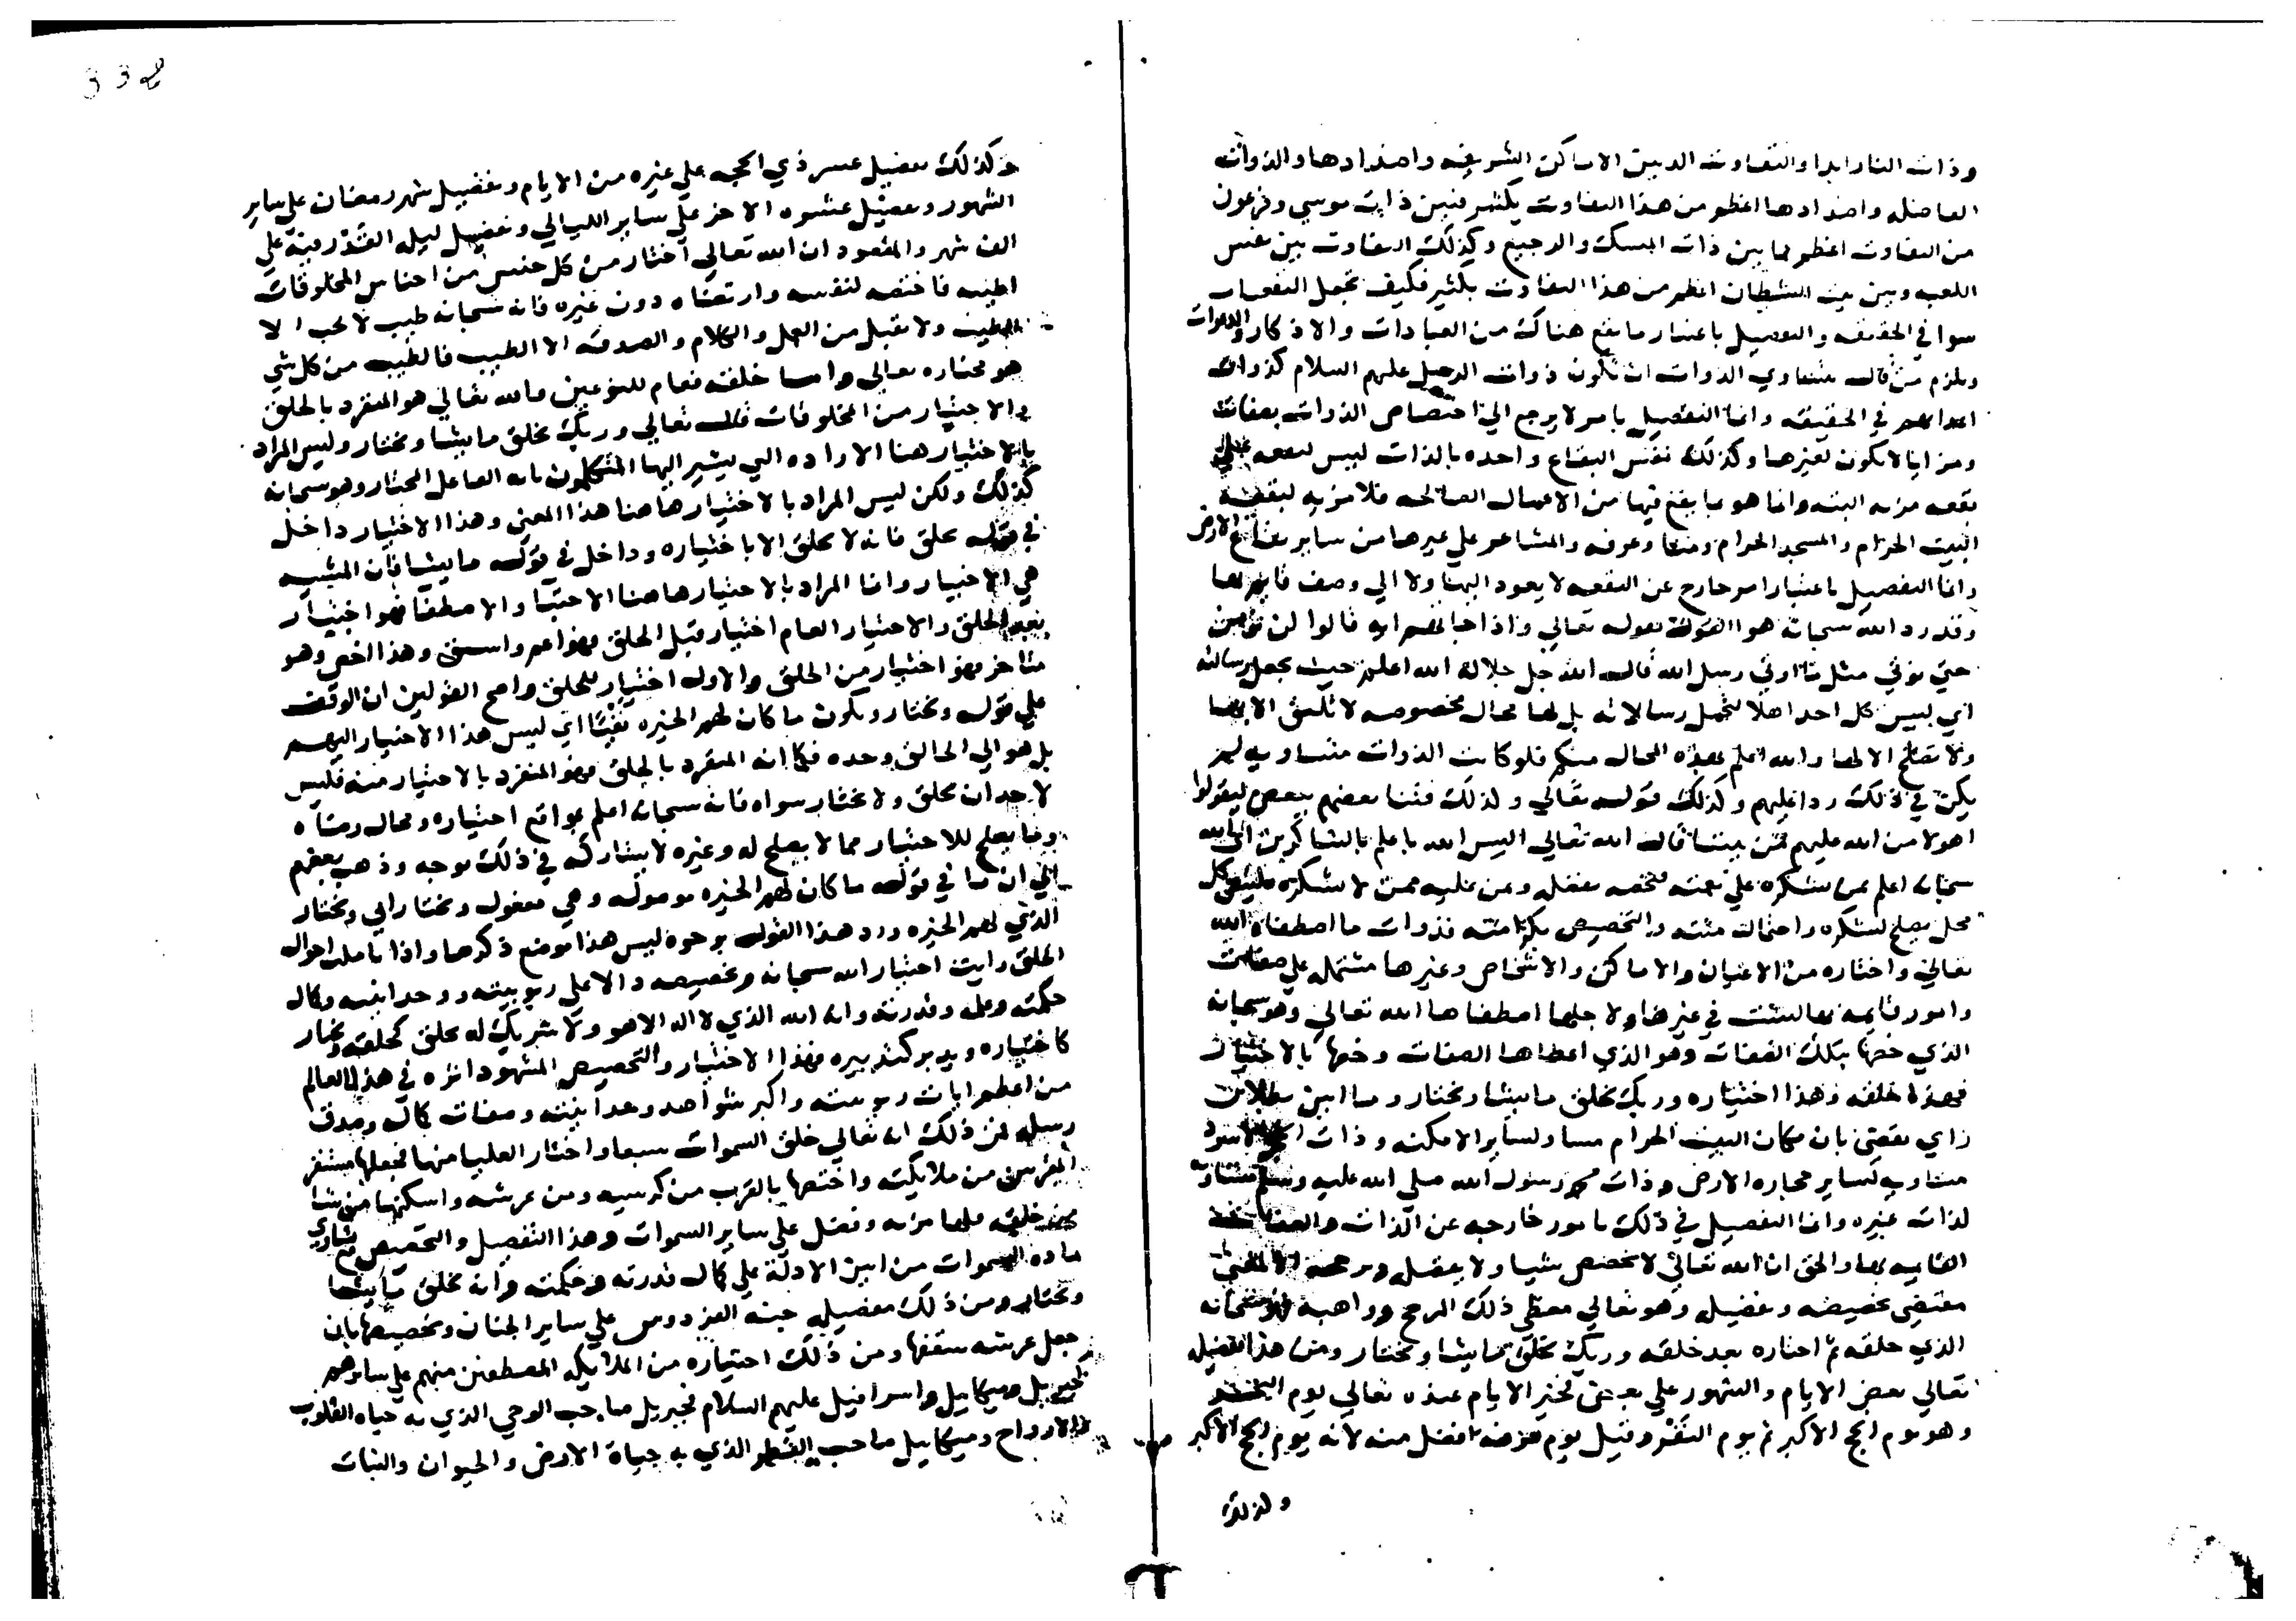 وذات النار ابدا والتفاوت الدبين الاماكن الشريفه واضدادها والذوات
الفاضله واضدادها اعظم من هذا التفاوت بكثير فبين ذات موسي وفرعون
من التفاوت اعظم مما بين ذات المسك والرجيع وكذلك التفاوت بين نفس
اللعبه وبين بيت الشيطان اعظم من هذا التفاوت بكثير فكيف تجعل البقعتان
سوا في الحقيقه والتفضيل باعتبار ما يقع هناك من العبادات والاذكار والدعوات
ويلزم من قال بتساوي الذوات ان تكون ذوات الرسل عليهم السلام كذوات
اعدائهم في الحقيقه وانما التفضيل بامر لا يرجع الي اختصاص الذوات بصفات
ومزايا لا تكون لغيرها وكذلك نفس البقاع واحده بالذات ليس لبقعه علي
بقعه مزيه البته وانما هو بما يقع فيها من الاعمال الصالحه فلا مزيه لبقعه
البيت الحرام والمسجد الحرام ومنا وعرفه والمشاعر علي غيرها من ساير بقاع الارض
وانما التفضيل باعتبار امر خارج عن البقعه لا يعود اليها ولا الي وصف قايم بها
وقد رد الله سبحانه هذا القول بقوله تعالي واذا جاتهم ايه قالوا لن نومن
حتي نوتي مثل ما اوتي رسل الله قال الله جل جلاله الله اعلم حيث يجعل رسالته
اي ليس كل احد اهلا لتحمل رسالاته بل لها محال مخصوصه لا تليق الا بها
ولا تصلح الا لها والله اعلم بهذه المحال منكم فلو كانت الذوات متساويه لم
يكن في ذلك ردا عليهم وكذلك قوله تعالي وكذلك فتنا بعضهم ببعض ليقولوا
اهولا من الله عليهم من بيننا قال الله تعالي اليس الله باعلم بالشاكرين اي انه
سبحانه اعلم بمن يشكره علي نعمته فيخصه بفضله ويمن عليه ممن لا يشكره فليس كل
محل يصلح لشكره واحتمال منته والتخصيص بكرامته فذوات ما اصطفاه الله
تعالي واختاره من الاعيان والاماكن والاشخاص وغيرها مشتمله علي صفات
وامور قايمه بها ليست في غيرها ولاجلها اصطفاها الله تعالي وهو سبحانه
الذي خصها بتلك الصفات وهو الذي اعطاها الصفات وخصها بالاختيار
فهذا خلقه وهذا اختياره وربك يخلق ما يشا ويختار وما ابين بطلان
راي يقضي بان مكان البيت الحرام مساو لساير الامكنه وذات الحجر الاسود
مساويه لساير حجاره الارض وذات محمد رسول الله صلي الله عليه وسلم مساويه
لذات غيره وانما التفضيل في ذلك بامور خارجه عن الذات والصفات
القايمه بها والحق ان الله تعالي لا يخصص شيا ولا يفضله ويرجحه الا لمعني
يقتضي تخصيصه وتفضيله وهو تعالي معطي ذلك المرجح وواهبه فهو سبحانه
الذي خلقه ثم اختاره بعد خلقه وربك يخلق ما يشا ويختار ومن هذا تفضيله
تعالي بعض الايام والشهور علي بعض فخير الايام عنده تعالي يوم النحر
وهو يوم الحج الاكبر ثم يوم النفر وقيل يوم عرفه افضل منه لانه يوم الحج الاكبر
وكذلك
338
وكذلك تفضيل عشر ذي الحجه علي غيره من الايام وتفضيل شهر رمضان علي ساير
الشهور وتفضيل عشره الاخر علي ساير الليالي وتفضيل ليله القدر منه علي
الف شهر والمقصود ان الله تعالي اختار من كل جنس من اجناس المخلوقات
اطيبه فاختصه لنفسه وارتضاه دون غيره فانه سبحانه طيب لا يحب الا
الطيب ولا يقبل من العمل والكلام والصدقه الا الطيب فالطيب من كل شي
هو مختاره تعالي واما خلقه فعام للنوعين فالله تعالي هو المنفرد بالخلق
والاختيار من المخلوقات قال تعالي وربك يخلق ما يشا ويختار وليس المراد
بالاختيار هنا الاراده التي يشير اليها المتكلمون بانه الفاعل المختار وهو سبحانه
كذلك ولكن ليس المراد بالاختيار هاهنا هذا المعني وهذا الاختيار داخل
في قوله يخلق فانه لا يخلق الا باختياره وداخل في قوله ما يشا فان المشيه
هي الاختيار وانما المراد بالاختيار هاهنا الاجتبا والاصطفا فهو اختيار
بعد الخلق والاختيار العام اختيار قبل الخلق فهو اعم واسبق وهذا اخص وهو
متاخر فهو اختيار من الخلق والاول اختيار للخلق واصح القولين ان الوقف
علي قوله ويختار ويكون ما كان لهم الخيره نفيا اي ليس هذا الاختيار اليهم
بل هو الي الخالق وحده فكما انه المنفرد بالخلق فهو المنفرد بالاختيار منه فليس
لاحد ان يخلق ولا يختار سواه فانه سبحانه اعلم بمواقع اختياره ومحال رضاه
وما يصلح للاختيار مما لا يصلح له وغيره لا يشاركه في ذلك بوجه وذهب بعضهم
الي ان ما في قوله ما كان لهم الخيره موصوله وهي مفعول ويختار اي ويختار
الذي لهم الخيره ورد هذا القول بوجوه ليس هذا موضع ذكرها واذا تاملت احوال
الخلق رايت اختيار الله سبحانه وتخصيصه دالا علي ربوبيته ووحدانيته وكمال
حكمته وعلمه وقدرته وانه الله الذي لا اله الا هو ولا شريك له يخلق كخلقه ويختار
كاختياره ويدبر كتدبيره فهذا الاختيار والتخصيص المشهود اثره في هذا العالم
من اعظم ايات ربوبيته واكبر شواهد وحدانيته وصفات كماله وصدق
رسله فمن ذلك انه تعالي خلق السموات سبعا واختار العليا منها فجعلها مستقر
المقربين من ملايكته واختصها بالقرب من كرسيه ومن عرشه واسكنها من شا
من خلقه فلها مزيه وفضل علي ساير السموات وهذا التفضيل والتخصيص مع تساوي
ماده السموات من ابين الادله علي كمال قدرته وحكمته وانه يخلق ما يشا
ويختار ومن ذلك تفضيله جنه الفردوس علي ساير الجنان وتخصيصها بان
جعل عرشه سقفها ومن ذلك اختياره من الملايكه المصطفين منهم علي سايرهم
كجبريل وميكاييل واسرافيل عليهم السلام فجبريل صاحب الوحي الذي به حياه القلوب
والارواح وميكاييل صاحب القطر الذي به حياة الارض والحيوان والنبات